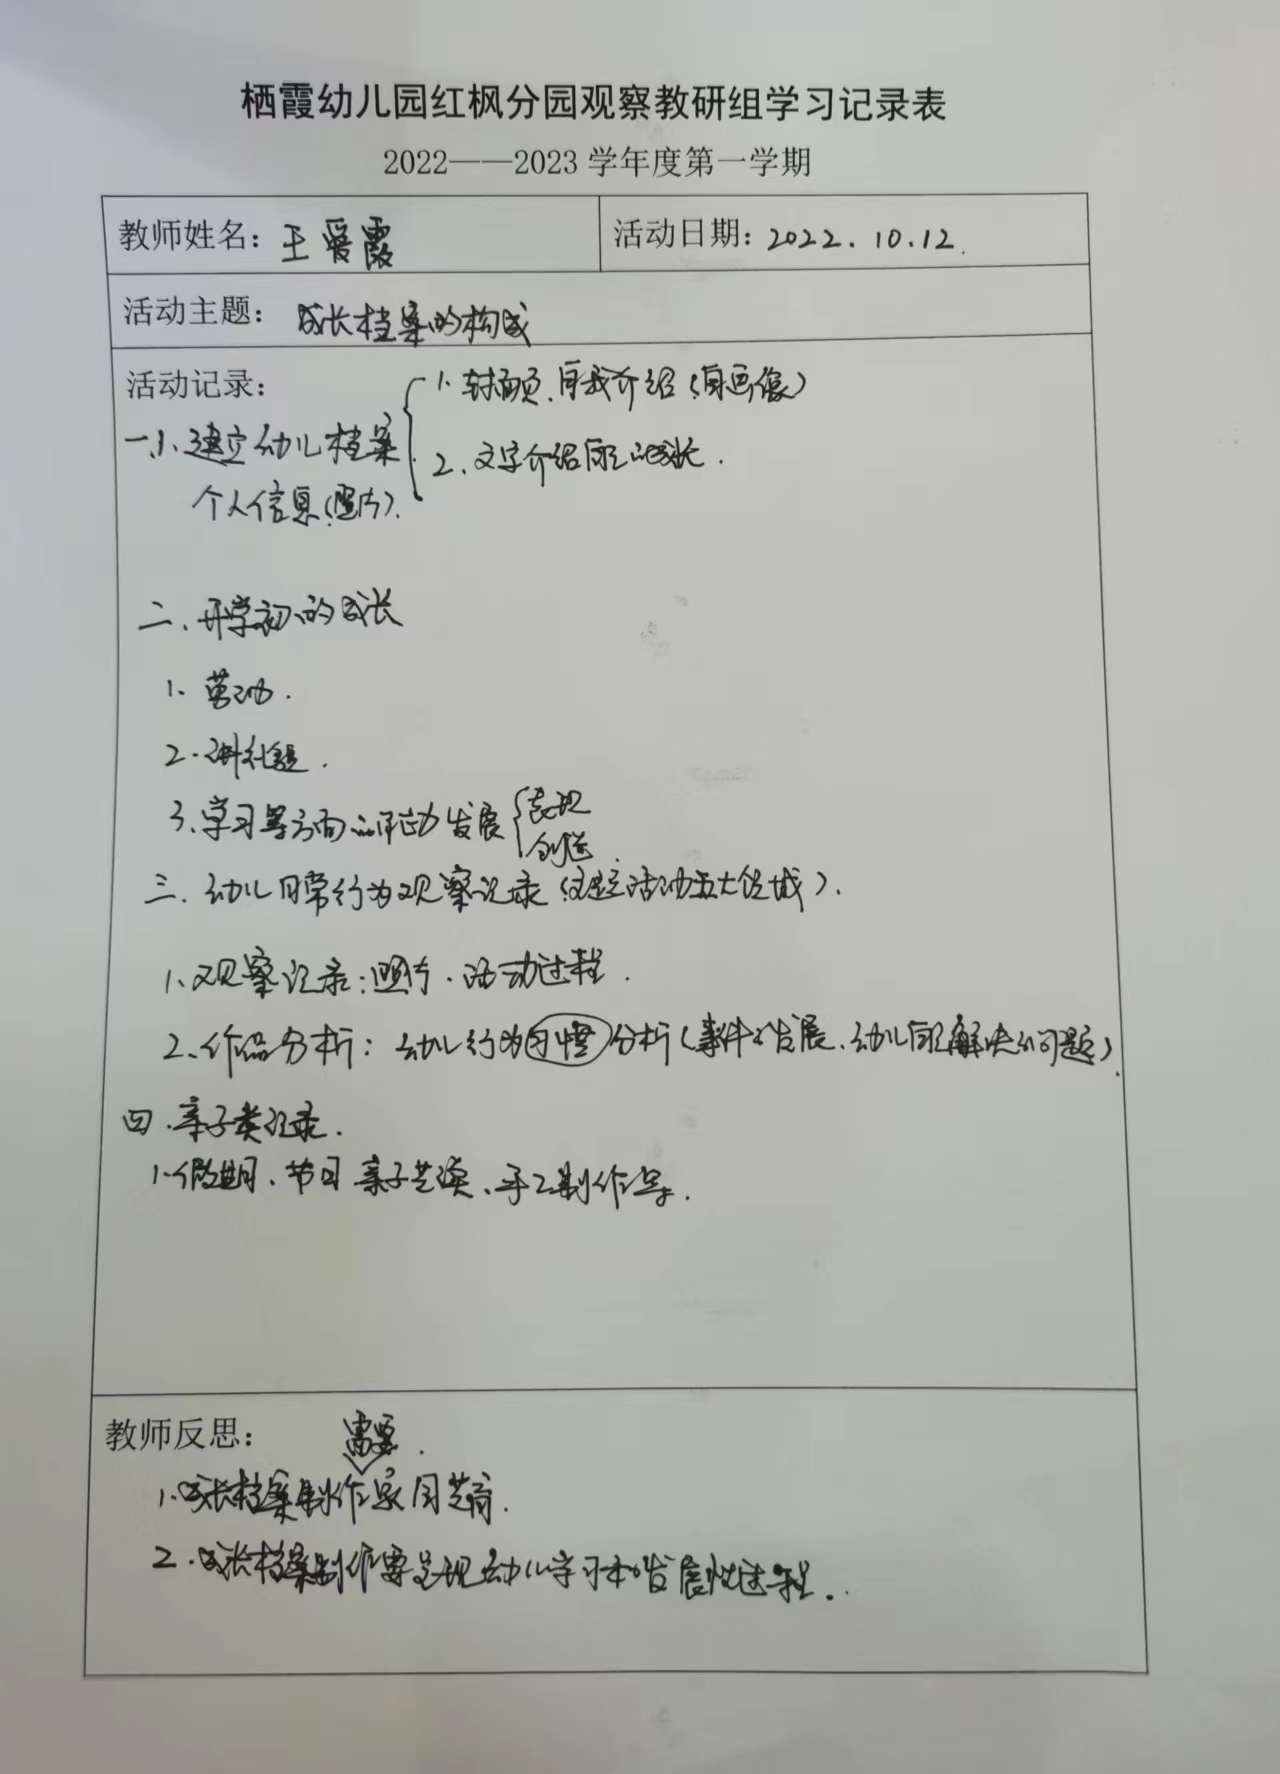 栖霞幼儿园红枫分园观察教研组学习记录表
2022——2023学年度第一学期
教师姓名：王爱霞
活动日期：2022.10.12.
活动主题：成长档案的构成
活动记录：
1、封面页、自我介绍（自画像）
一、1、建立幼儿档案
2、文字介绍 成长.
个人信息（照片）.
二、开学初的成长
1、劳动.
2、讲礼貌.
3、学习等方面的 发展 表现
创造
三、幼儿日常行为观察记录（ 活动五大领域）.
1、观察记录：照片、活动过程.
2、作品分析：幼儿行为习惯分析（事件的发展、幼儿 解决的问题）.
四、亲子类记录.
1、假期、节日亲子共读、手工制作等.
教师反思：
需要.
1、成长档案制作家园共育.
2、成长档案制作要呈现幼儿学习和发展性过程.